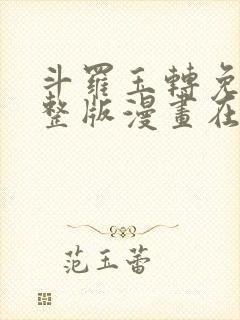 斗羅玉轉免
整版漫畫在
范玉蕾